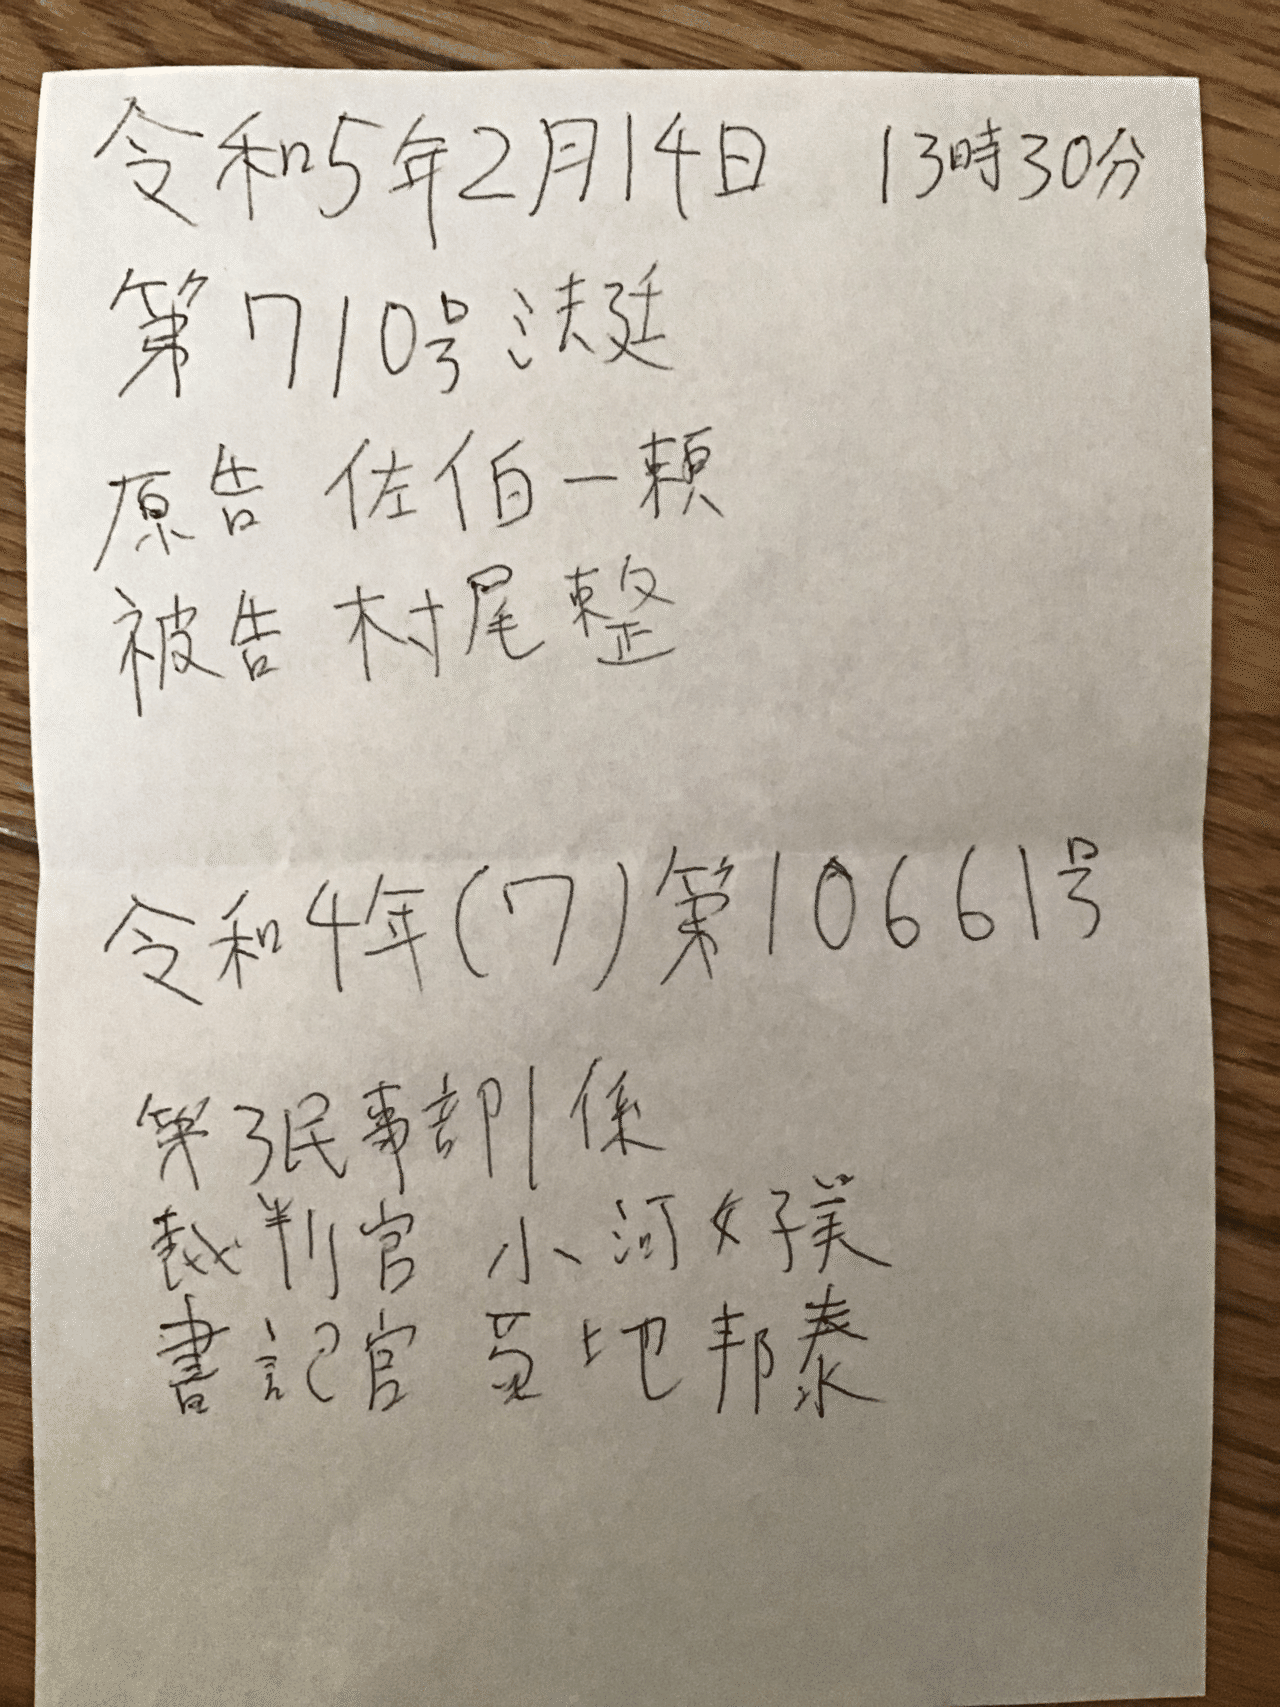 令和5年2月14日 13時30分
第710号法廷
原告 佐伯一頼
被告 村尾整
令和4年(ワ)第10661号
第3民事部1係
裁判官 小河好美
書記官 地邦泰